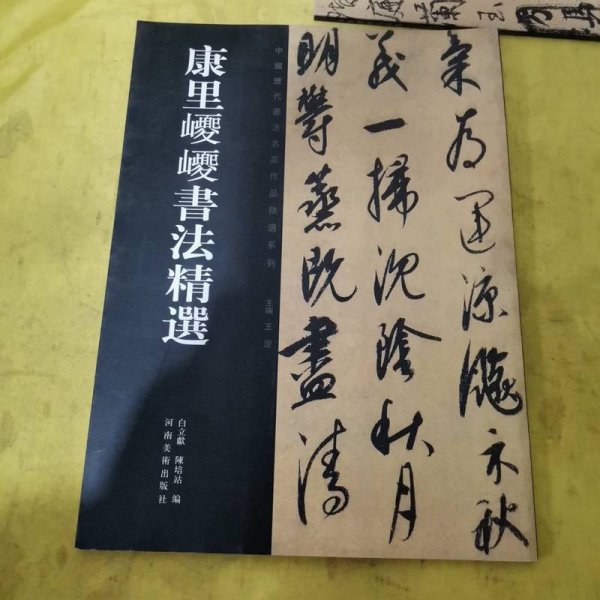 康里巙巙書法精選
中國歷代書法名家作品精選系列 主編 王澄
白立獻 陳培站 編
河南美術出版社
氣為運涼飈示秋
義一掃沈陰秋月
明鬱蒸既盡清